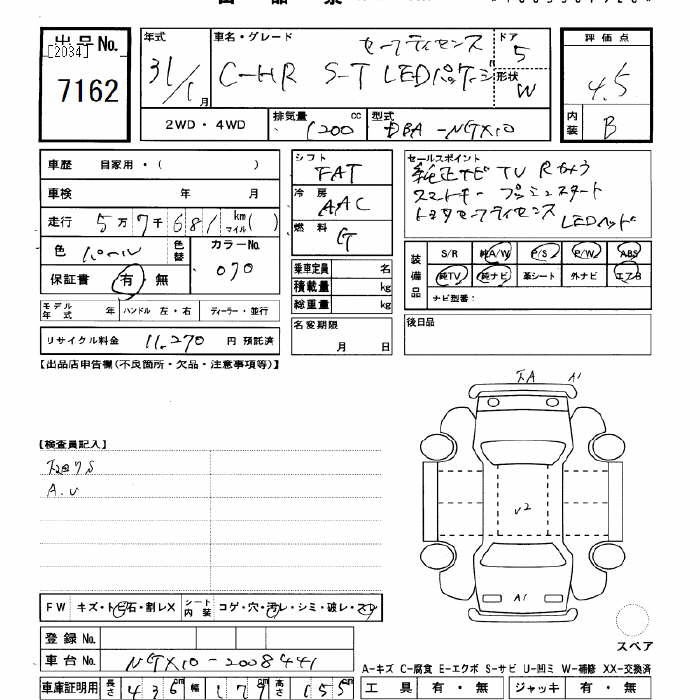 出品票
出品No.
[2034]
7162
年式
31/1月
車名・グレード
セーフティセンス
C-HR S-T LEDパッケージ
ドア
5
形状
W
評価点
4.5
内装
B
2WD・4WD
排気量
1200 cc
型式
DBA-NGX10
車歴 自家用・( )
車検 年 月
走行 5万7千681 km マイル( )
色 パール
色替
カラーNo.
070
保証書 有・無
モデル年式 年 ハンドル 左・右 ディーラー・並行
リサイクル料金 11,270 円 預託済
シフト
FAT
冷房
AAC
燃料
G
乗車定員 名
積載量 kg
総重量 kg
名変期限
月 日
セールスポイント
純正ナビ TV Rカメラ
スマートキー プッシュスタート
トヨタセーフティセンス
LEDヘッド
装備品
S/R 純A/W P/S P/W ABS
純TV 純ナビ 革シート 外ナビ エアB
ナビ型番:
後日品
【出品店申告欄(不良箇所・欠品・注意事項等)】
A1
【検査員記入】
A.U
U2
A1
FW キズ・トビ石・割レX シート内装 コゲ・穴・汚レ・シミ・破レ・スレ
登録No.
車台No. NGX10-2008441
スペア
A-キズ C-腐食 E-エクボ S-サビ U-凹ミ W-補修 XX-交換済
車庫証明用 長さ 436cm 幅 179cm 高さ 155
工具 有・無 ジャッキ 有・無